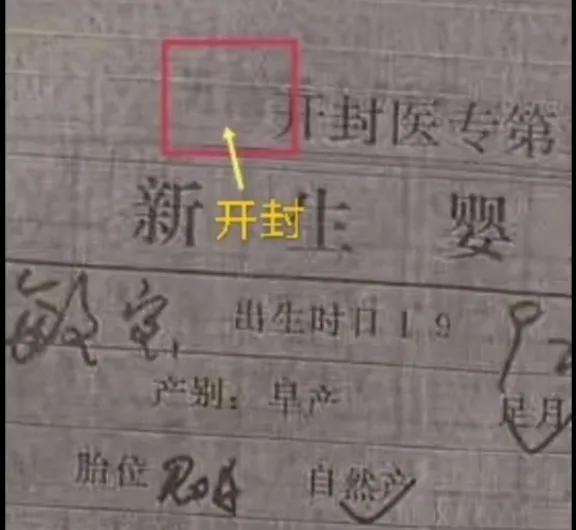 开封医专第
新生婴
开封
敏 室 出生时日19 92
产别：早产 足月
胎位 ROA 自然产